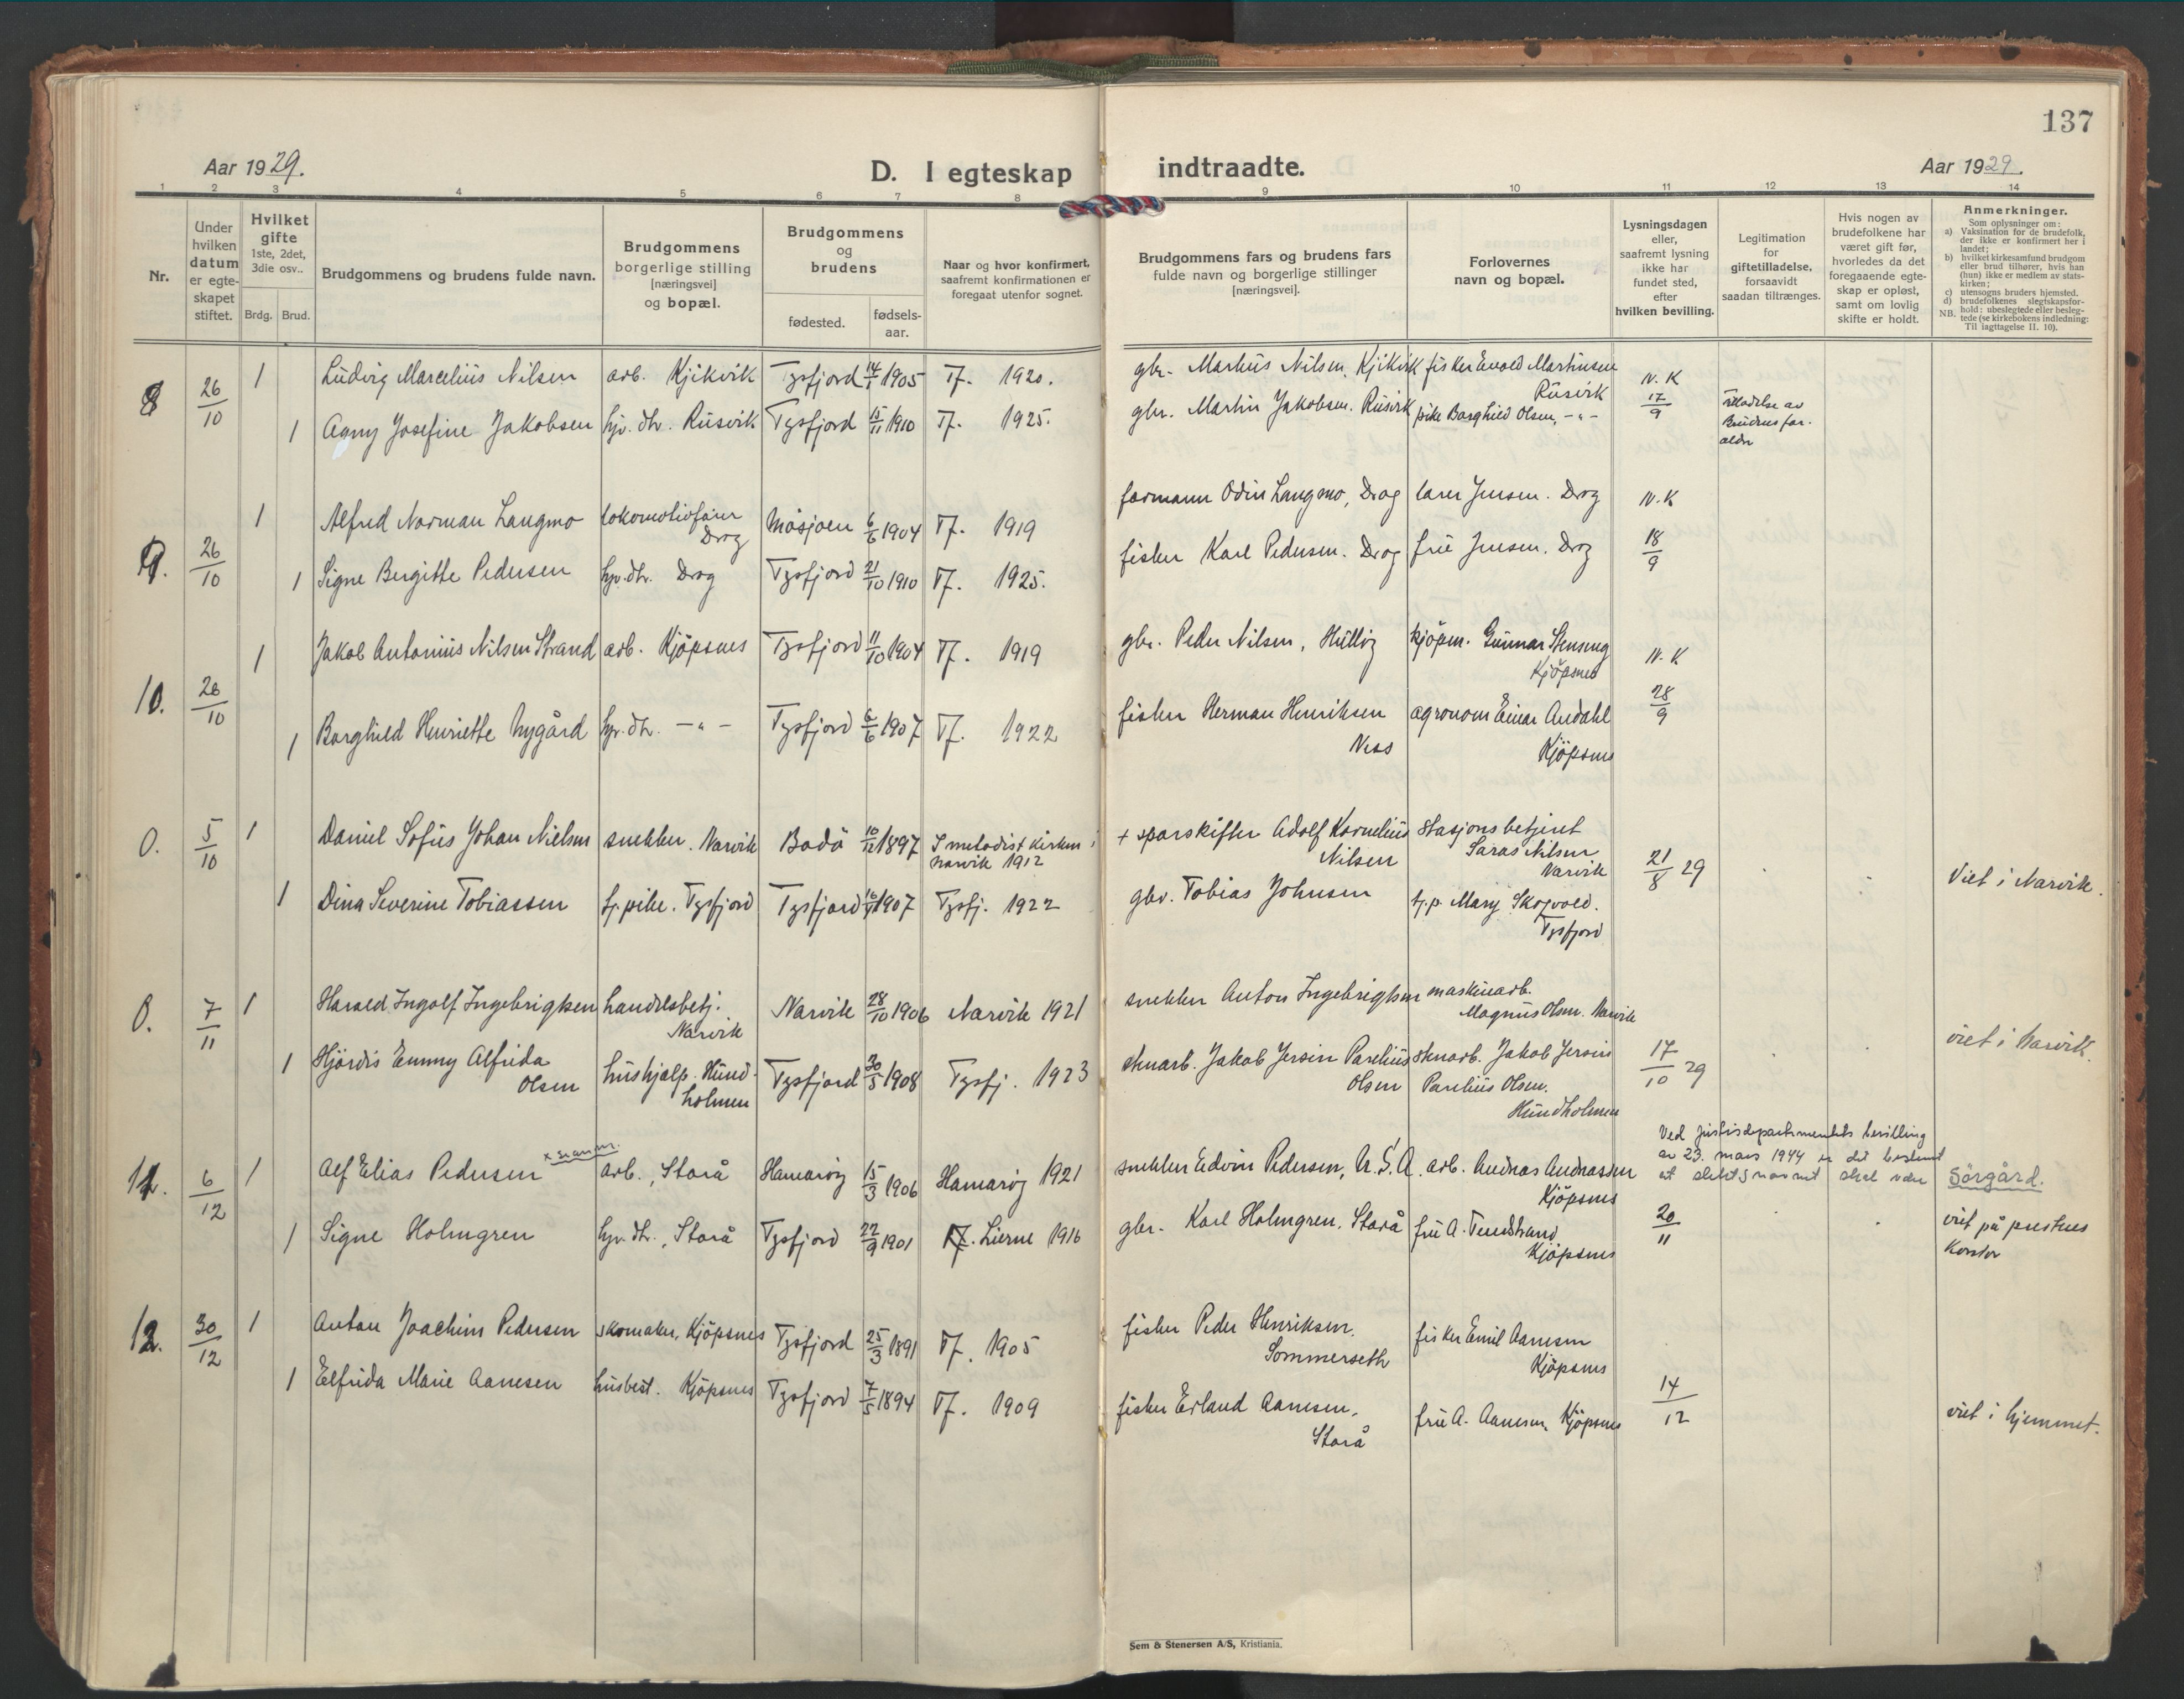 137
Aar 1929.
D. I egteskap indtraadte.
Aar 1929.
1 2 3 4 5 6 7 8 9 10 11 12 13 14
Nr.
Under hvilken datum er egte-skapet stiftet.
Hvilket gifte 1ste, 2det, 3die osv..
Brdg. Brud.
Brudgommens og brudens fulde navn.
Brudgommens borgerlige stilling [næringsvei] og bopæl.
Brudgommens og brudens
fødested. fødsels-aar.
Naar og hvor konfirmert, saafremt konfirmationen er foregaat utenfor sognet.
Brudgommens fars og brudens fars fulde navn og borgerlige stillinger [næringsvei].
Forlovernes navn og bopæl.
Lysningsdagen eller, saafremt lysning ikke har fundet sted, efter hvilken bevilling.
Legitimation for giftetilladelse, forsaavidt saadan tiltrænges.
Hvis nogen av brudefolkene har været gift før, hvorledes da det foregaaende egte-skap er opløst, samt om lovlig skifte er holdt.
Anmerkninger.
Som oplysninger om:
a) Vaksination for de brudefolk, der ikke er konfirmert her i landet;
b) hvilket kirkesamfund brudgom eller brud tilhører, hvis han (hun) ikke er medlem av stats-kirken;
c) utensogns bruders hjemsted.
d) brudefolkenes slegtskapsfor-hold: ubeslegtede eller besleg-tede (se kirkebokens indledning:
NB. Til iagttagelse II. 10).
8 26/10 1 Ludvig Marcelius Nilsen arb. Kjikvik Tysfjord 14/1 1905 Tf. 1920. gbr. Markus Nilsen, Kjikvik fisker Evald Martinsen Rusvik N.K 17/9
1 Agny Josefine Jakobsen hjv. dtr. Rusvik Tysfjord 15/11 1910 Tf. 1925. gbr. Martin Jakobsen. Rusvik pike Borghild Olsen, -"-
Tilladelse av Brudens for-aldre
9. 26/10 1 Alfred Norman Langmo lokomotivfører Drag Mosjøen 6/6 1904 Tf. 1919 formann Odin Langmo, Drag lærer Jensen. Drag N.K 18/9
1 Signe Bergitte Pedersen hjv. dtr. Drag Tysfjord 21/10 1910 Tf. 1925. fisker Karl Pedersen. Drag frue Jensen. Drag
10. 26/10 1 Jakob Antonius Nilsen Strand arb. Kjöpsnes Tysfjord 11/10 1904 Tf. 1919 gbr. Peder Nilsen, Hulløy kjöpm. Gunnar Stenseng Kjöpsnes N.K 28/9
1 Borghild Henriette Nygård hjv. dtr. -"- Tysfjord 6/6 1907 Tf. 1922 fisker Herman Henriksen Ness agronom Einar Andahl Kjöpsnes
0. 5/10 1 Daniel Sofus Johan Nielsen snekker. Narvik Bodö 10/12 1897 I metodistkirken i Narvik 1912 + sporskifter Adolf Kornelius Nilsen Stasjonsbetjent Saras Nilsen Narvik 21/8 29
1 Dina Severine Tobiassen tj. pike. Tysfjord Tysfjord 1907 Tysfj. 1922 gbr. Tobias Johnsen tj.p. Mary Skogvold. Tysfjord
Viet i Narvik.
0. 7/11 1 Harald Ingolf Ingebrigtsen handelsbetj. Narvik Narvik 28/10 1906 Narvik 1921 snekker Anton Ingebrigtsen maskinarb. Magnus Olsen. Narvik
1 Hjördis Emmy Alfrida Olsen hushjelp. Hund-holmen Tysfjord 30/5 1908 Tysfj. 1923 stenarb. Jakob Jersin Parelius Olsen stenarb. Jakob Jersin Parelius Olsen. Hundholmen 17/10 29
viet i Narvik.
Ved Justisdepartementets bevilling av 23. mars 1944 er det bestemt at slektsnavnet skal være Sörgård.
11. 6/12 1 Alf Elias Pedersen x se anm. arb., Storå Hamaröy 15/3 1906 Hamaröy 1921 snekker Edvin Pedersen, U.S.A. arb. Andreas Andreassen Kjöpsnes
1 Signe Holmgren hjv. dtr., Storå Tysfjord 22/9 1901 Lierne 1916 gbr. Karl Holmgren, Storå frue A. Tendstrand Kjöpsnes 20/11
viet på prestens kontor
12. 30/12 1 Anton Joachim Pedersen skomaker, Kjöpsnes Tysfjord 25/3 1891 Tf. 1905 fisker Peder Henriksen. Sommerseth fisker Emil Aanesen Kjöpsnes
1 Elfrida Marie Aanesen husbest. Kjöpsnes Tysfjord 7/5 1894 Tf. 1909 fisker Erland Aanesen, Storå frue A. Aanesen, Kjöpsnes 14/12
viet i hjemmet.
Sem & Stenersen A/S, Kristiania.